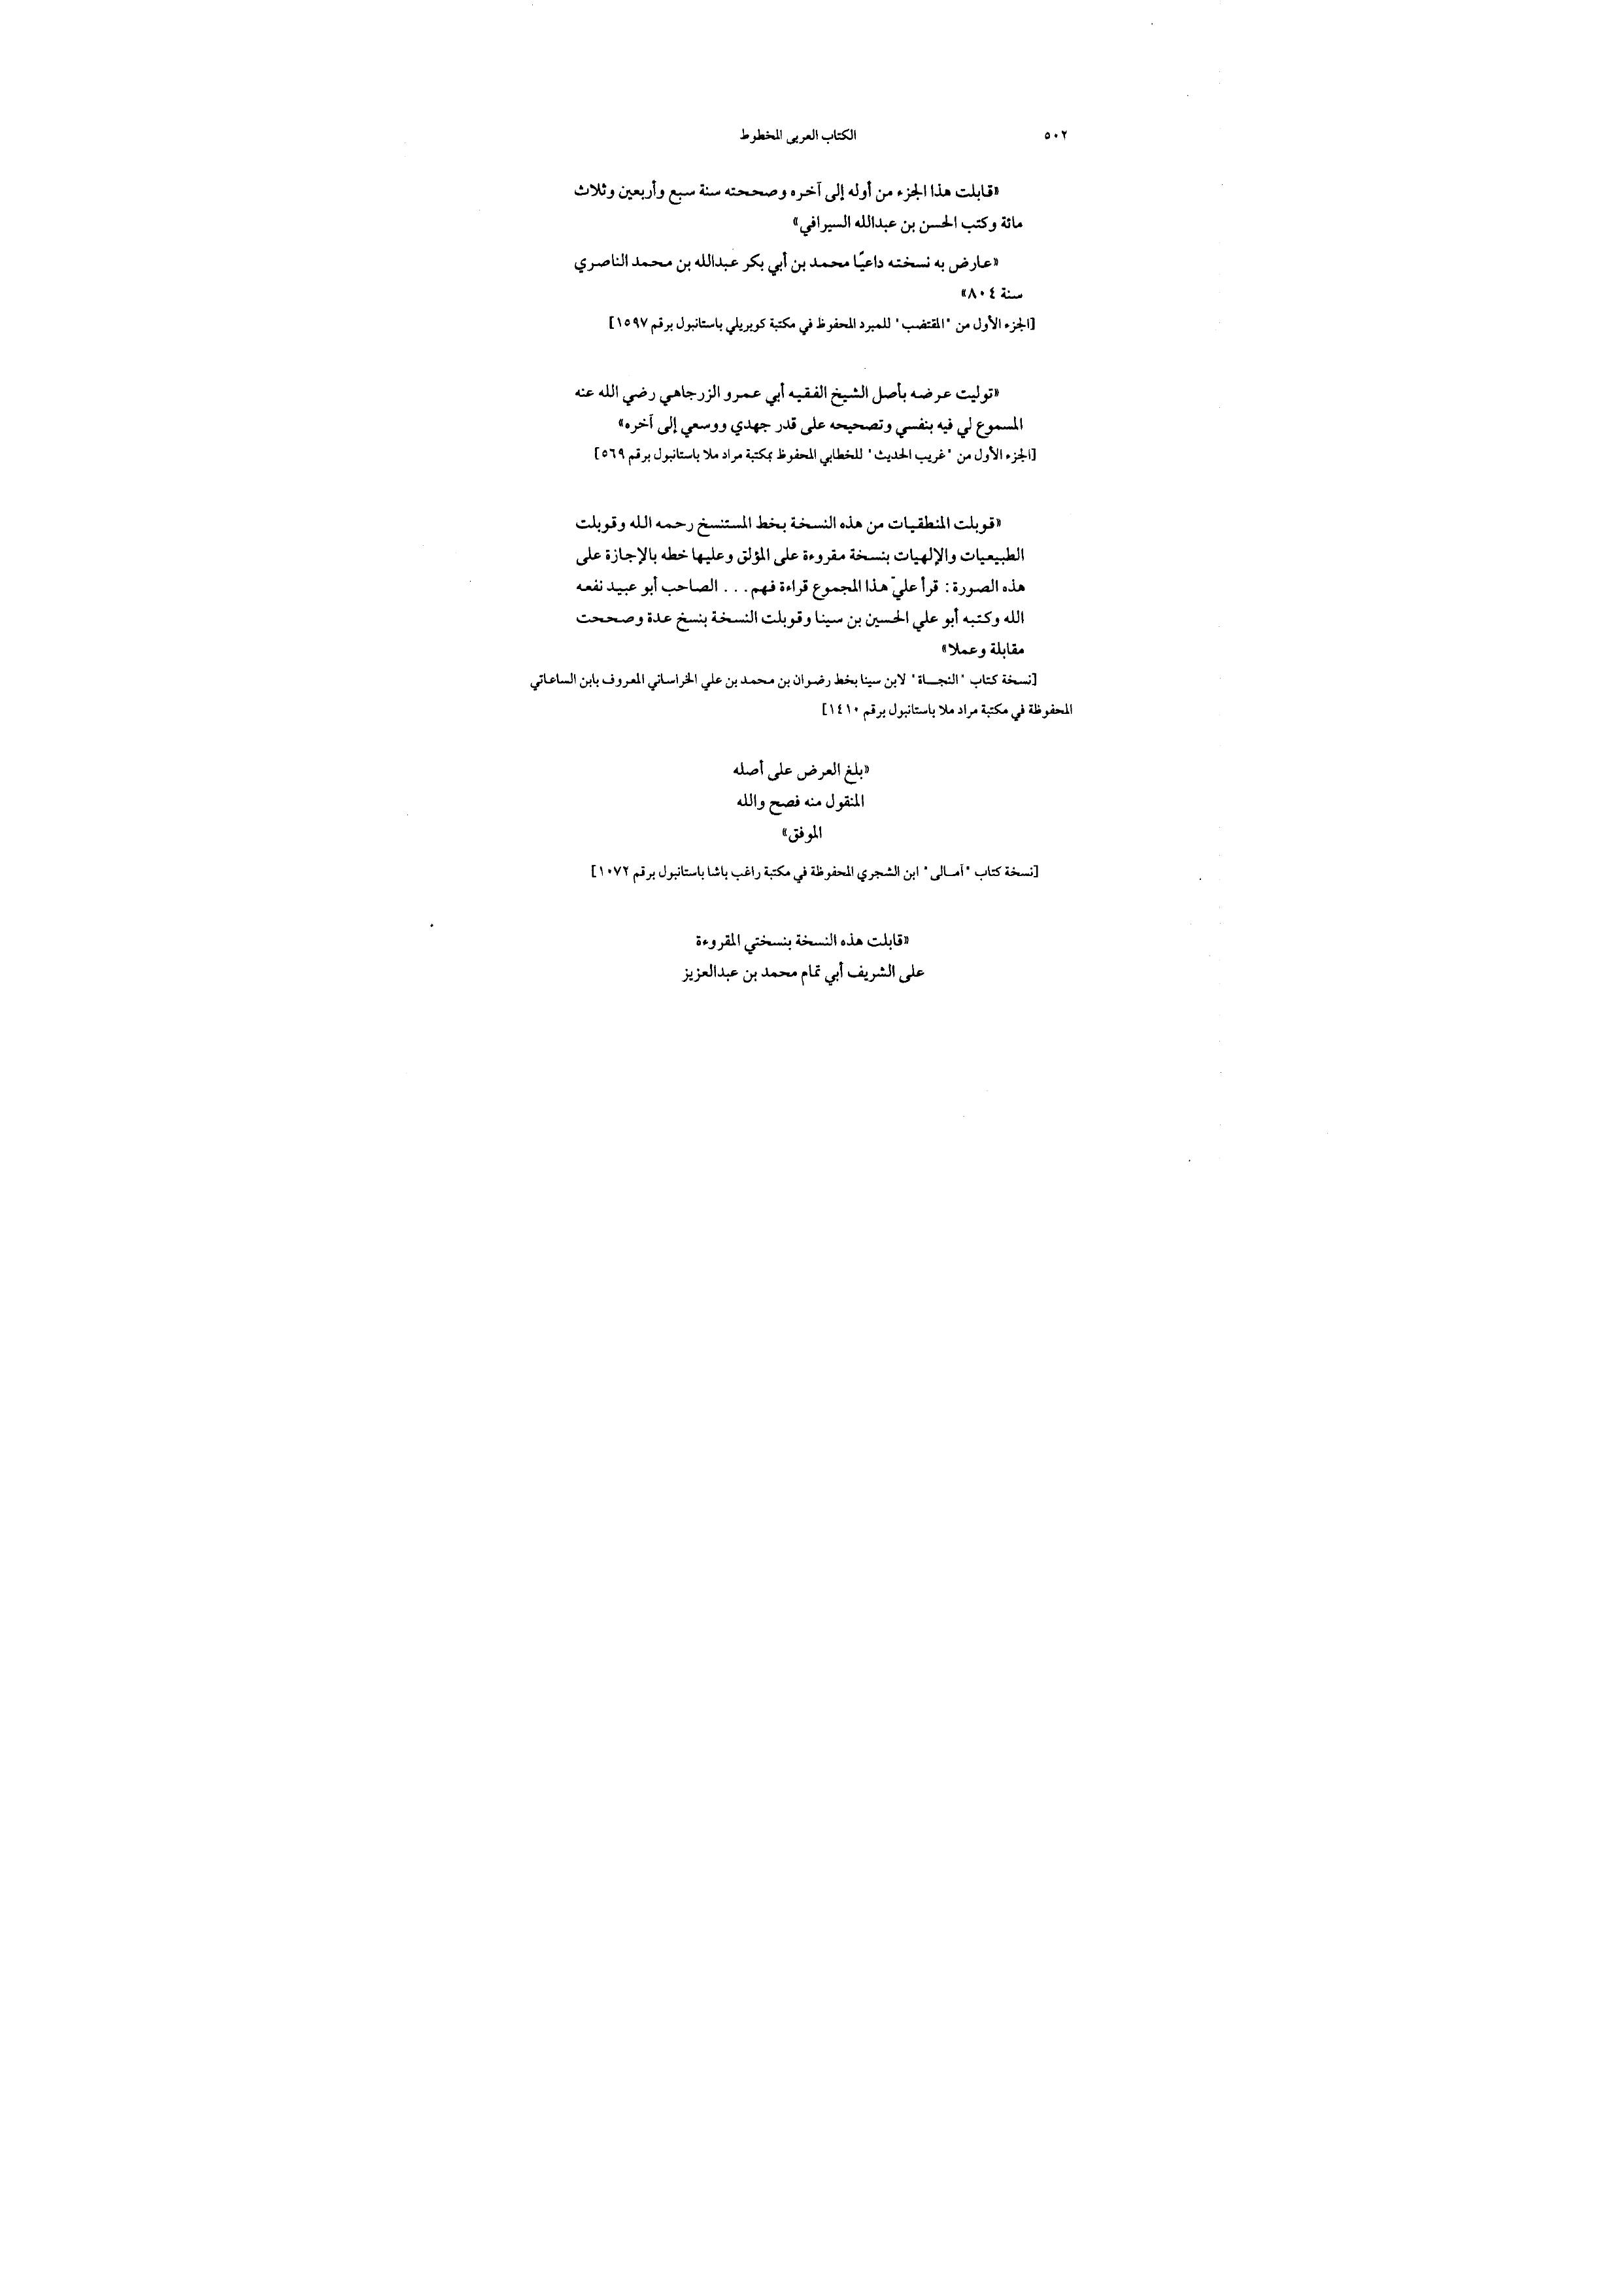 ٥٠٢ الكتاب العربى المخطوط
«قابلت هذا الجزء من أوله إلى آخره وصححته سنة سبع وأربعين وثلاث
مائة وكتب الحسن بن عبدالله السيرافي»
«عارض به نسخته داعيًا محمد بن أبي بكر عبدالله بن محمد الناصري
سنة ٨٠٤»
[الجزء الأول من "المقتضب" للمبرد المحفوظ في مكتبة كوبريلي باستانبول برقم ١٥٩٧]
«توليت عرضه بأصل الشيخ الفقيه أبي عمرو الزرجاهي رضي الله عنه
المسموع لي فيه بنفسي وتصحيحه على قدر جهدي ووسعي إلى آخره»
[الجزء الأول من "غريب الحديث" للخطابي المحفوظ بمكتبة مراد ملا باستانبول برقم ٥٦٩]
«قوبلت المنطقيات من هذه النسخة بخط المستنسخ رحمه الله وقوبلت
الطبيعيات والإلهيات بنسخة مقروءة على المؤلق وعليها خطه بالإجازة على
هذه الصورة: قرأ عليّ هذا المجموع قراءة فهم... الصاحب أبو عبيد نفعه
الله وكتبه أبو علي الحسين بن سينا وقوبلت النسخة بنسخ عدة وصححت
مقابلة وعملا»
[نسخة كتاب "النجــاة" لابن سينا بخط رضوان بن محمد بن علي الخراساني المعروف بابن الساعاتي
المحفوظة في مكتبة مراد ملا باستانبول برقم ١٤١٠]
«بلغ العرض على أصله
المنقول منه فصح والله
الموفق»
[نسخة كتاب "آمــالى" ابن الشجري المحفوظة في مكتبة راغب باشا باستانبول برقم ١٠٧٢]
«قابلت هذه النسخة بنسختي المقروءة
على الشريف أبي تمام محمد بن عبدالعزيز